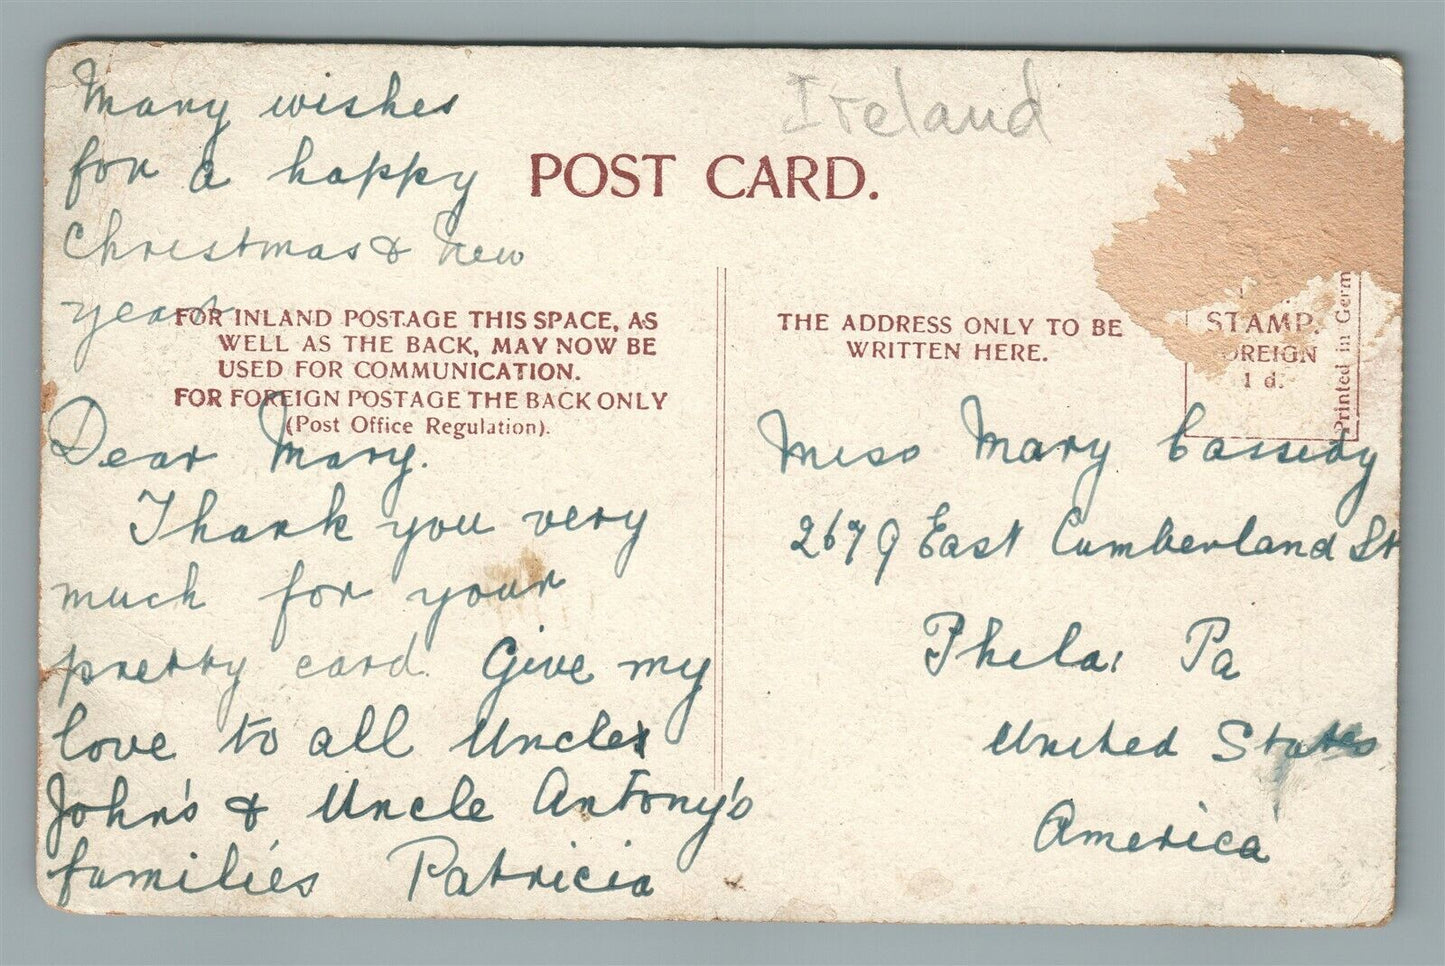 Many wishes
for a happy
Christmas & New
year
Ireland
POST CARD.
FOR INLAND POSTAGE THIS SPACE, AS
WELL AS THE BACK, MAY NOW BE
USED FOR COMMUNICATION.
FOR FOREIGN POSTAGE THE BACK ONLY
(Post Office Regulation).
Dear Mary.
Thank you very
much for your
pretty card. Give my
love to all Uncle
John's & Uncle Antony's
familie's Patricia
THE ADDRESS ONLY TO BE
WRITTEN HERE.
STAMP.
OREIGN
1 d.
Printed in Germ
Miss Mary Cassidy
2679 East Cumberland St
Phela: Pa
United States
America